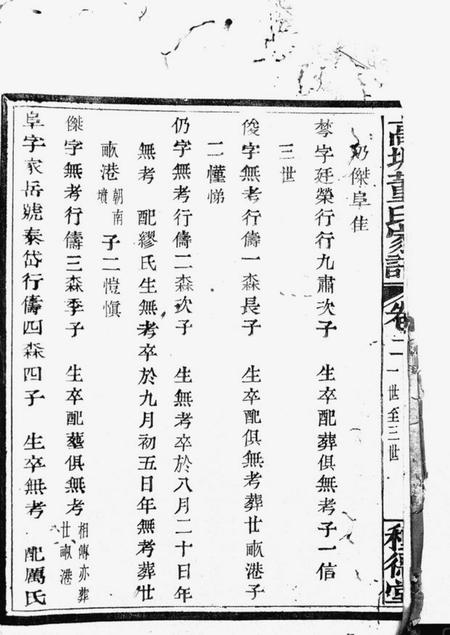 高城董氏家譜 卷二 一世至三世 種德堂
仍傑阜佳
棽字廷榮行行九肅次子 生卒配葬俱無考子一信
三世
俊字無考行儔一森長子 生卒配俱無考葬世畝港子
二懂悌
仍字無考行儔二森次子 生無考卒於八月二十日年
無考 配繆氏生無考卒於九月初五日年無考葬世
畝港朝南墳 子二愷慎
傑字無考行儔三森季子 生卒配墓俱無考相傳亦葬世畝港
阜字家岳號泰岱行儔四森四子 生卒無考 配厲氏